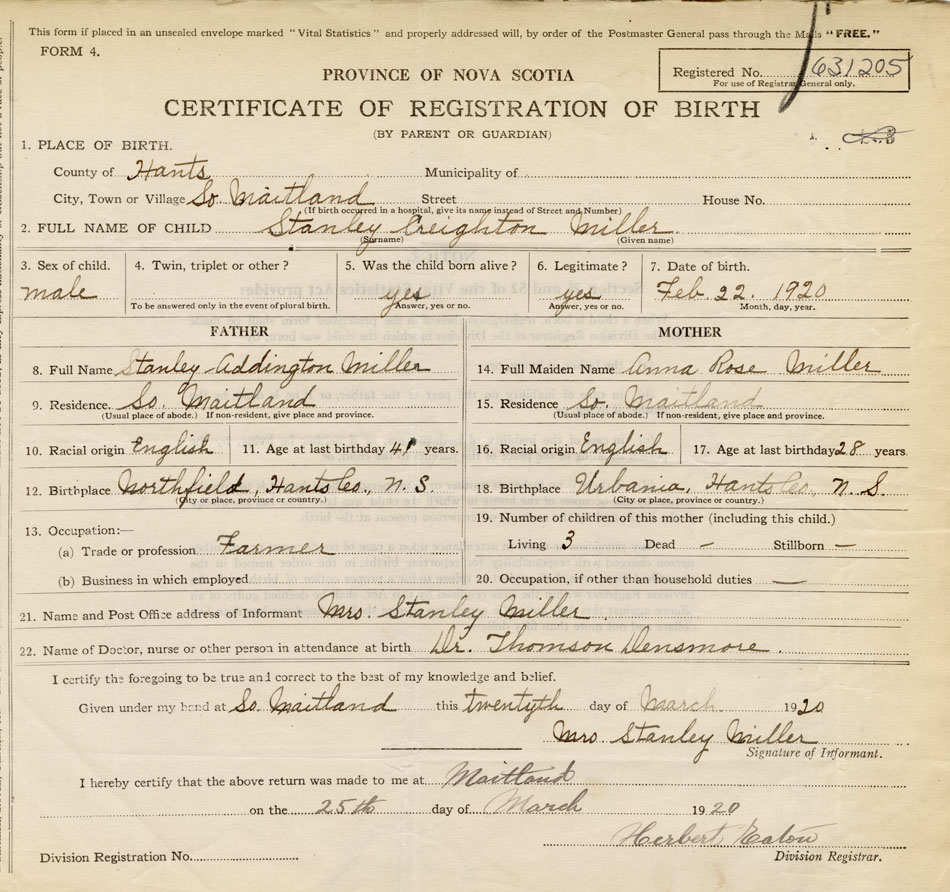 This form if placed in an unsealed envelope marked "Vital Statistics" and properly addressed will, by order of the Postmaster General pass through the Mails "FREE."
FORM 4.
PROVINCE OF NOVA SCOTIA
Registered No. 631205
For use of Registrar General only.
CERTIFICATE OF REGISTRATION OF BIRTH
(BY PARENT OR GUARDIAN)
1. PLACE OF BIRTH.
County of Hants Municipality of
City, Town or Village So. Maitland Street House No.
(If birth occurred in a hospital, give its name instead of Street and Number)
2. FULL NAME OF CHILD Stanley Creighton Miller.
(Surname) (Given name)
3. Sex of child. 4. Twin, triplet or other? 5. Was the child born alive? 6. Legitimate? 7. Date of birth.
male yes yes Feb. 22. 1920
To be answered only in the event of plural birth. Answer, yes or no. Answer, yes or no. Month, day, year.
FATHER MOTHER
8. Full Name Stanley Addington Miller 14. Full Maiden Name Anna Rose Miller
9. Residence. So. Maitland 15. Residence So. Maitland
(Usual place of abode.) If non-resident, give place and province. (Usual place of abode.) If non-resident, give place and province.
10. Racial origin English 11. Age at last birthday 41 years. 16. Racial origin English 17. Age at last birthday 28 years
12. Birthplace Northfield, Hants Co., N. S. 18. Birthplace Urbania, Hants Co., N. S.
(City or place, province or country.) (City or place, province or country.)
13. Occupation:— 19. Number of children of this mother (including this child.)
(a) Trade or profession Farmer Living 3 Dead – Stillborn –
(b) Business in which employed 20. Occupation, if other than household duties —
21. Name and Post Office address of Informant Mrs. Stanley Miller.
22. Name of Doctor, nurse or other person in attendance at birth Dr. Thomson Densmore.
I certify the foregoing to be true and correct to the best of my knowledge and belief.
Given under my hand at So. Maitland this twentyth day of March 1920
Mrs Stanley Miller
Signature of Informant.
I hereby certify that the above return was made to me at Maitland
on the 25th day of March 1920
Herbert Eaton
Division Registration No. Division Registrar.